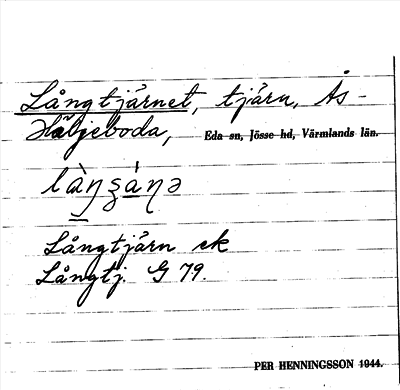 Långtjärnet, tjärn, Ås-
Häljeboda, Eda sn, Jösse hd, Värmlands län.
Långtjärn ek
Långtj. G 79.
PER HENNINGSSON 1944.